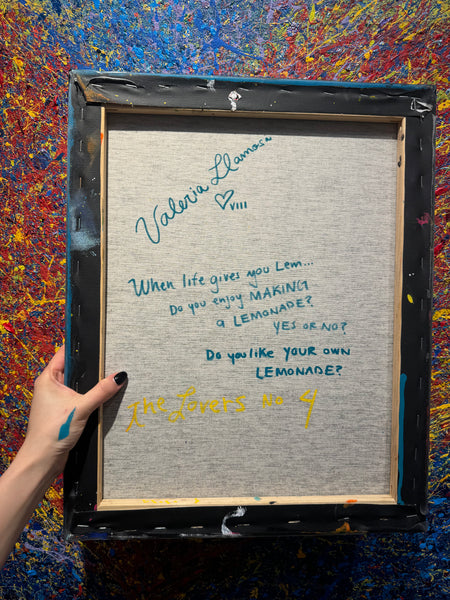 Valeria Llamas
♡VIII
When life gives you Lem...
Do you enjoy MAKING
a LEMONADE?
YES OR NO?
Do you like YOUR OWN
LEMONADE?
The Lovers No 4